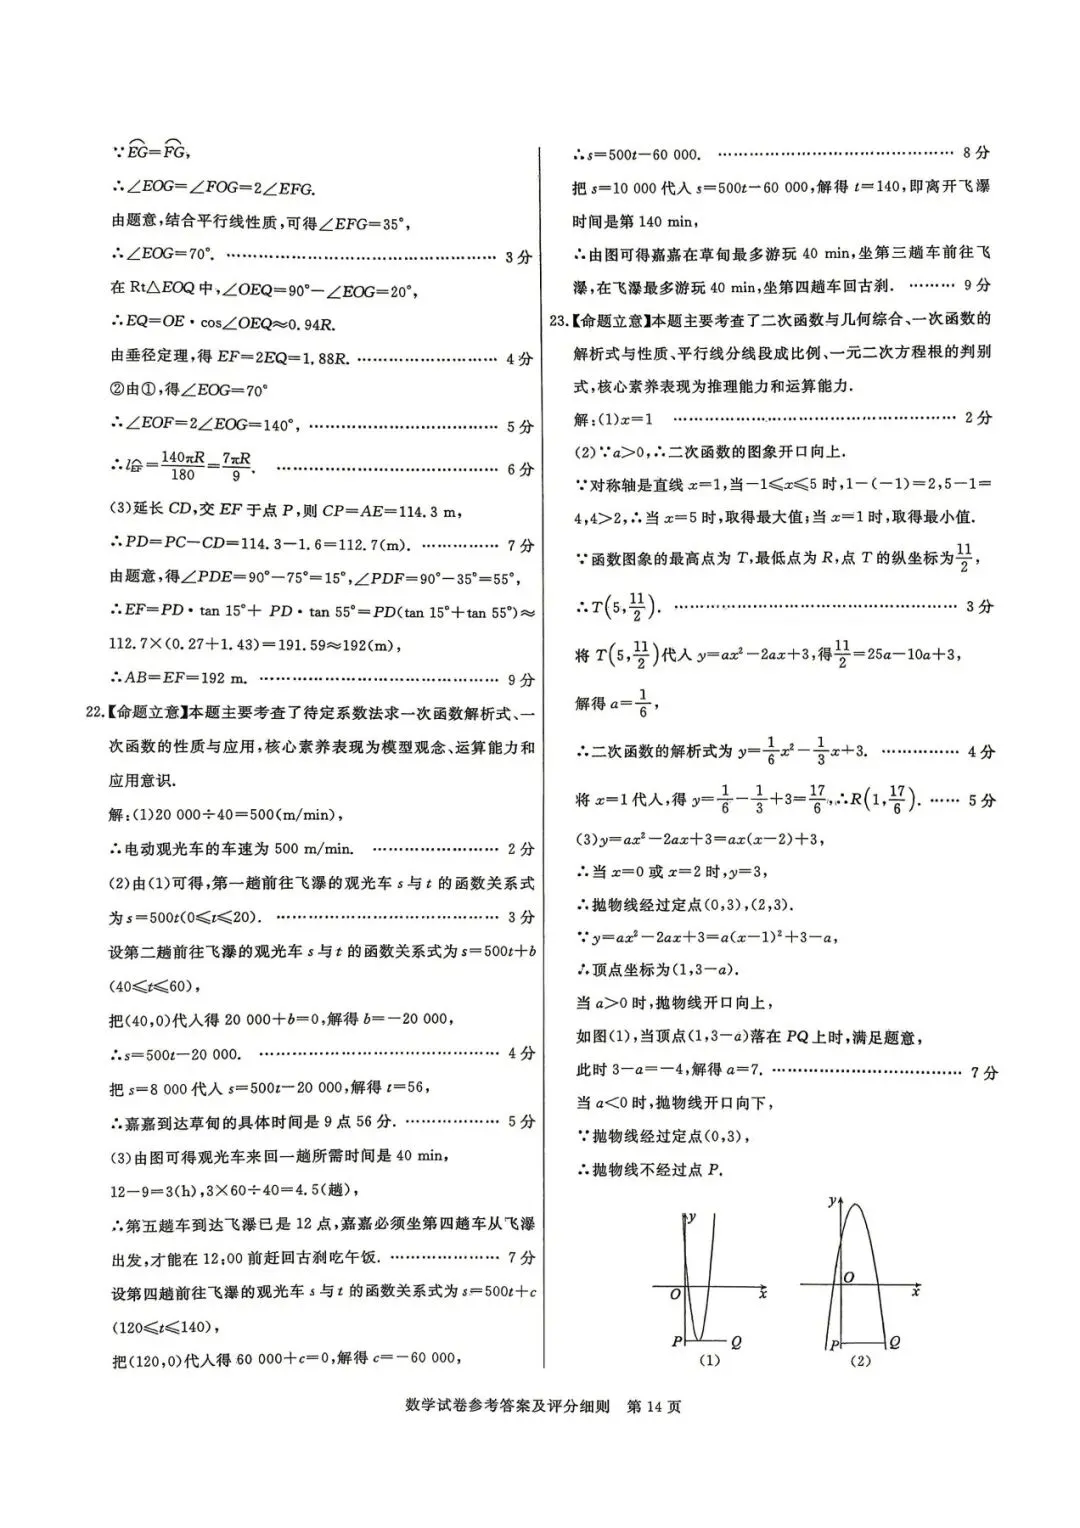 ∵EG=FG,
∴∠EOG=∠FOG=2∠EFG.
由题意,结合平行线性质,可得∠EFG=35°,
∴∠EOG=70°. ………………………………………… 3分
在Rt△EOQ中,∠OEQ=90°-∠EOG=20°,
∴EQ=OE·cos∠OEQ≈0.94R.
由垂径定理,得EF=2EQ=1.88R. …………………… 4分
②由①,得∠EOG=70°
∴∠EOF=2∠EOG=140°, …………………………… 5分
∴l=140πR/180=7πR/9. ………………………………… 6分
(3)延长CD,交EF于点P,则CP=AE=114.3 m,
∴PD=PC-CD=114.3-1.6=112.7(m). …………… 7分
由题意,得∠PDE=90°-75°=15°,∠PDF=90°-35°=55°,
∴EF=PD·tan 15°+ PD·tan 55°=PD(tan 15°+tan 55°)≈
112.7×(0.27+1.43)=191.59≈192(m),
∴AB=EF=192 m. …………………………………… 9分
22.【命题立意】本题主要考查了待定系数法求一次函数解析式、一
次函数的性质与应用,核心素养表现为模型观念、运算能力和
应用意识.
解:(1)20 000÷40=500(m/min),
∴电动观光车的车速为500 m/min. …………………… 2分
(2)由(1)可得,第一趟前往飞瀑的观光车s与t的函数关系式
为s=500t(0≤t≤20). ………………………………… 3分
设第二趟前往飞瀑的观光车s与t的函数关系式为s=500t+b
(40≤t≤60),
把(40,0)代入得20 000+b=0,解得b=-20 000,
∴s=500t-20 000. …………………………………… 4分
把s=8 000代入s=500t-20 000,解得t=56,
∴嘉嘉到达草甸的具体时间是9点56分. ……………… 5分
(3)由图可得观光车来回一趟所需时间是40 min,
12-9=3(h),3×60÷40=4.5(趟),
∴第五趟车到达飞瀑已是12点,嘉嘉必须坐第四趟车从飞瀑
出发,才能在12:00前赶回古刹吃午饭. ……………… 7分
设第四趟前往飞瀑的观光车s与t的函数关系式为s=500t+c
(120≤t≤140),
把(120,0)代入得60 000+c=0,解得c=-60 000,
∴s=500t-60 000. …………………………………… 8分
把s=10 000代入s=500t-60 000,解得t=140,即离开飞瀑
时间是第140 min,
∴由图可得嘉嘉在草甸最多游玩40 min,坐第三趟车前往飞
瀑,在飞瀑最多游玩40 min,坐第四趟车回古刹. ……… 9分
23.【命题立意】本题主要考查了二次函数与几何综合、一次函数的
解析式与性质、平行线分线段成比例、一元二次方程根的判别
式,核心素养表现为推理能力和运算能力.
解:(1)x=1 ………………………………………… 2分
(2)∵a>0,∴二次函数的图象开口向上.
∵对称轴是直线x=1,当-1≤x≤5时,1-(-1)=2,5-1=
4,4>2,∴当x=5时,取得最大值;当x=1时,取得最小值.
∵函数图象的最高点为T,最低点为R,点T的纵坐标为11/2,
∴T(5,11/2). ………………………………………… 3分
将T(5,11/2)代入y=ax²-2ax+3,得11/2=25a-10a+3,
解得a=1/6,
∴二次函数的解析式为y=1/6x²-1/3x+3. ………… 4分
将x=1代入,得y=1/6-1/3+3=17/6,∴R(1,17/6). …… 5分
(3)y=ax²-2ax+3=ax(x-2)+3,
∴当x=0或x=2时,y=3,
∴抛物线经过定点(0,3),(2,3).
∵y=ax²-2ax+3=a(x-1)²+3-a,
∴顶点坐标为(1,3-a).
当a>0时,抛物线开口向上,
如图(1),当顶点(1,3-a)落在PQ上时,满足题意,
此时3-a=-4,解得a=7. …………………………… 7分
当a<0时,抛物线开口向下,
∵抛物线经过定点(0,3),
∴抛物线不经过点P.
y
O
x
P
Q
(1)
y
O
x
P
Q
(2)
数学试卷参考答案及评分细则 第14页